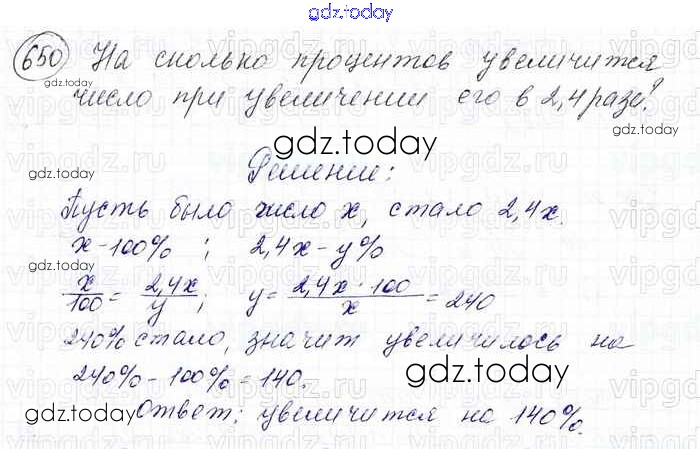 gdz.today
650 На сколько процентов увеличится
число при увеличении его в 2,4 раза?
gdz.today
gdz.today
gdz.today
Решение:
gdz.today
Пусть было число x, стало 2,4x.
x - 100% ; 2,4x - y%
gdz.today
x/100 = 2,4x/y ; y = 2,4x · 100/x = 240
240% стало, значит увеличилось на
240% - 100% = 140.
gdz.today
gdz.today
Ответ: увеличится на 140%.